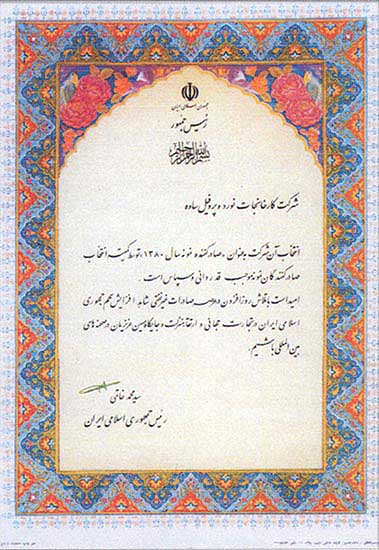 جمهوری اسلامی ایران
رئیس جمهور
بسم الله الرحمن الرحیم
شرکت کارخانجات نورد و پروفیل ساوه
انتخاب آن شرکت بعنوان «صادرکننده نمونه سال ۱۳۸۰» توسط کمیته انتخاب
صادرکنندگان نمونه موجب قدردانی و سپاس است.
امید است با تلاش روزافزون در عرصه صادرات غیرنفتی شاهد افزایش سهم جمهوری
اسلامی ایران در تجارت جهانی و ارتقاء منزلت و جایگاه میهن عزیزمان در صحنه های
بین المللی باشیم.
سید محمد خاتمی
رئیس جمهوری اسلامی ایران